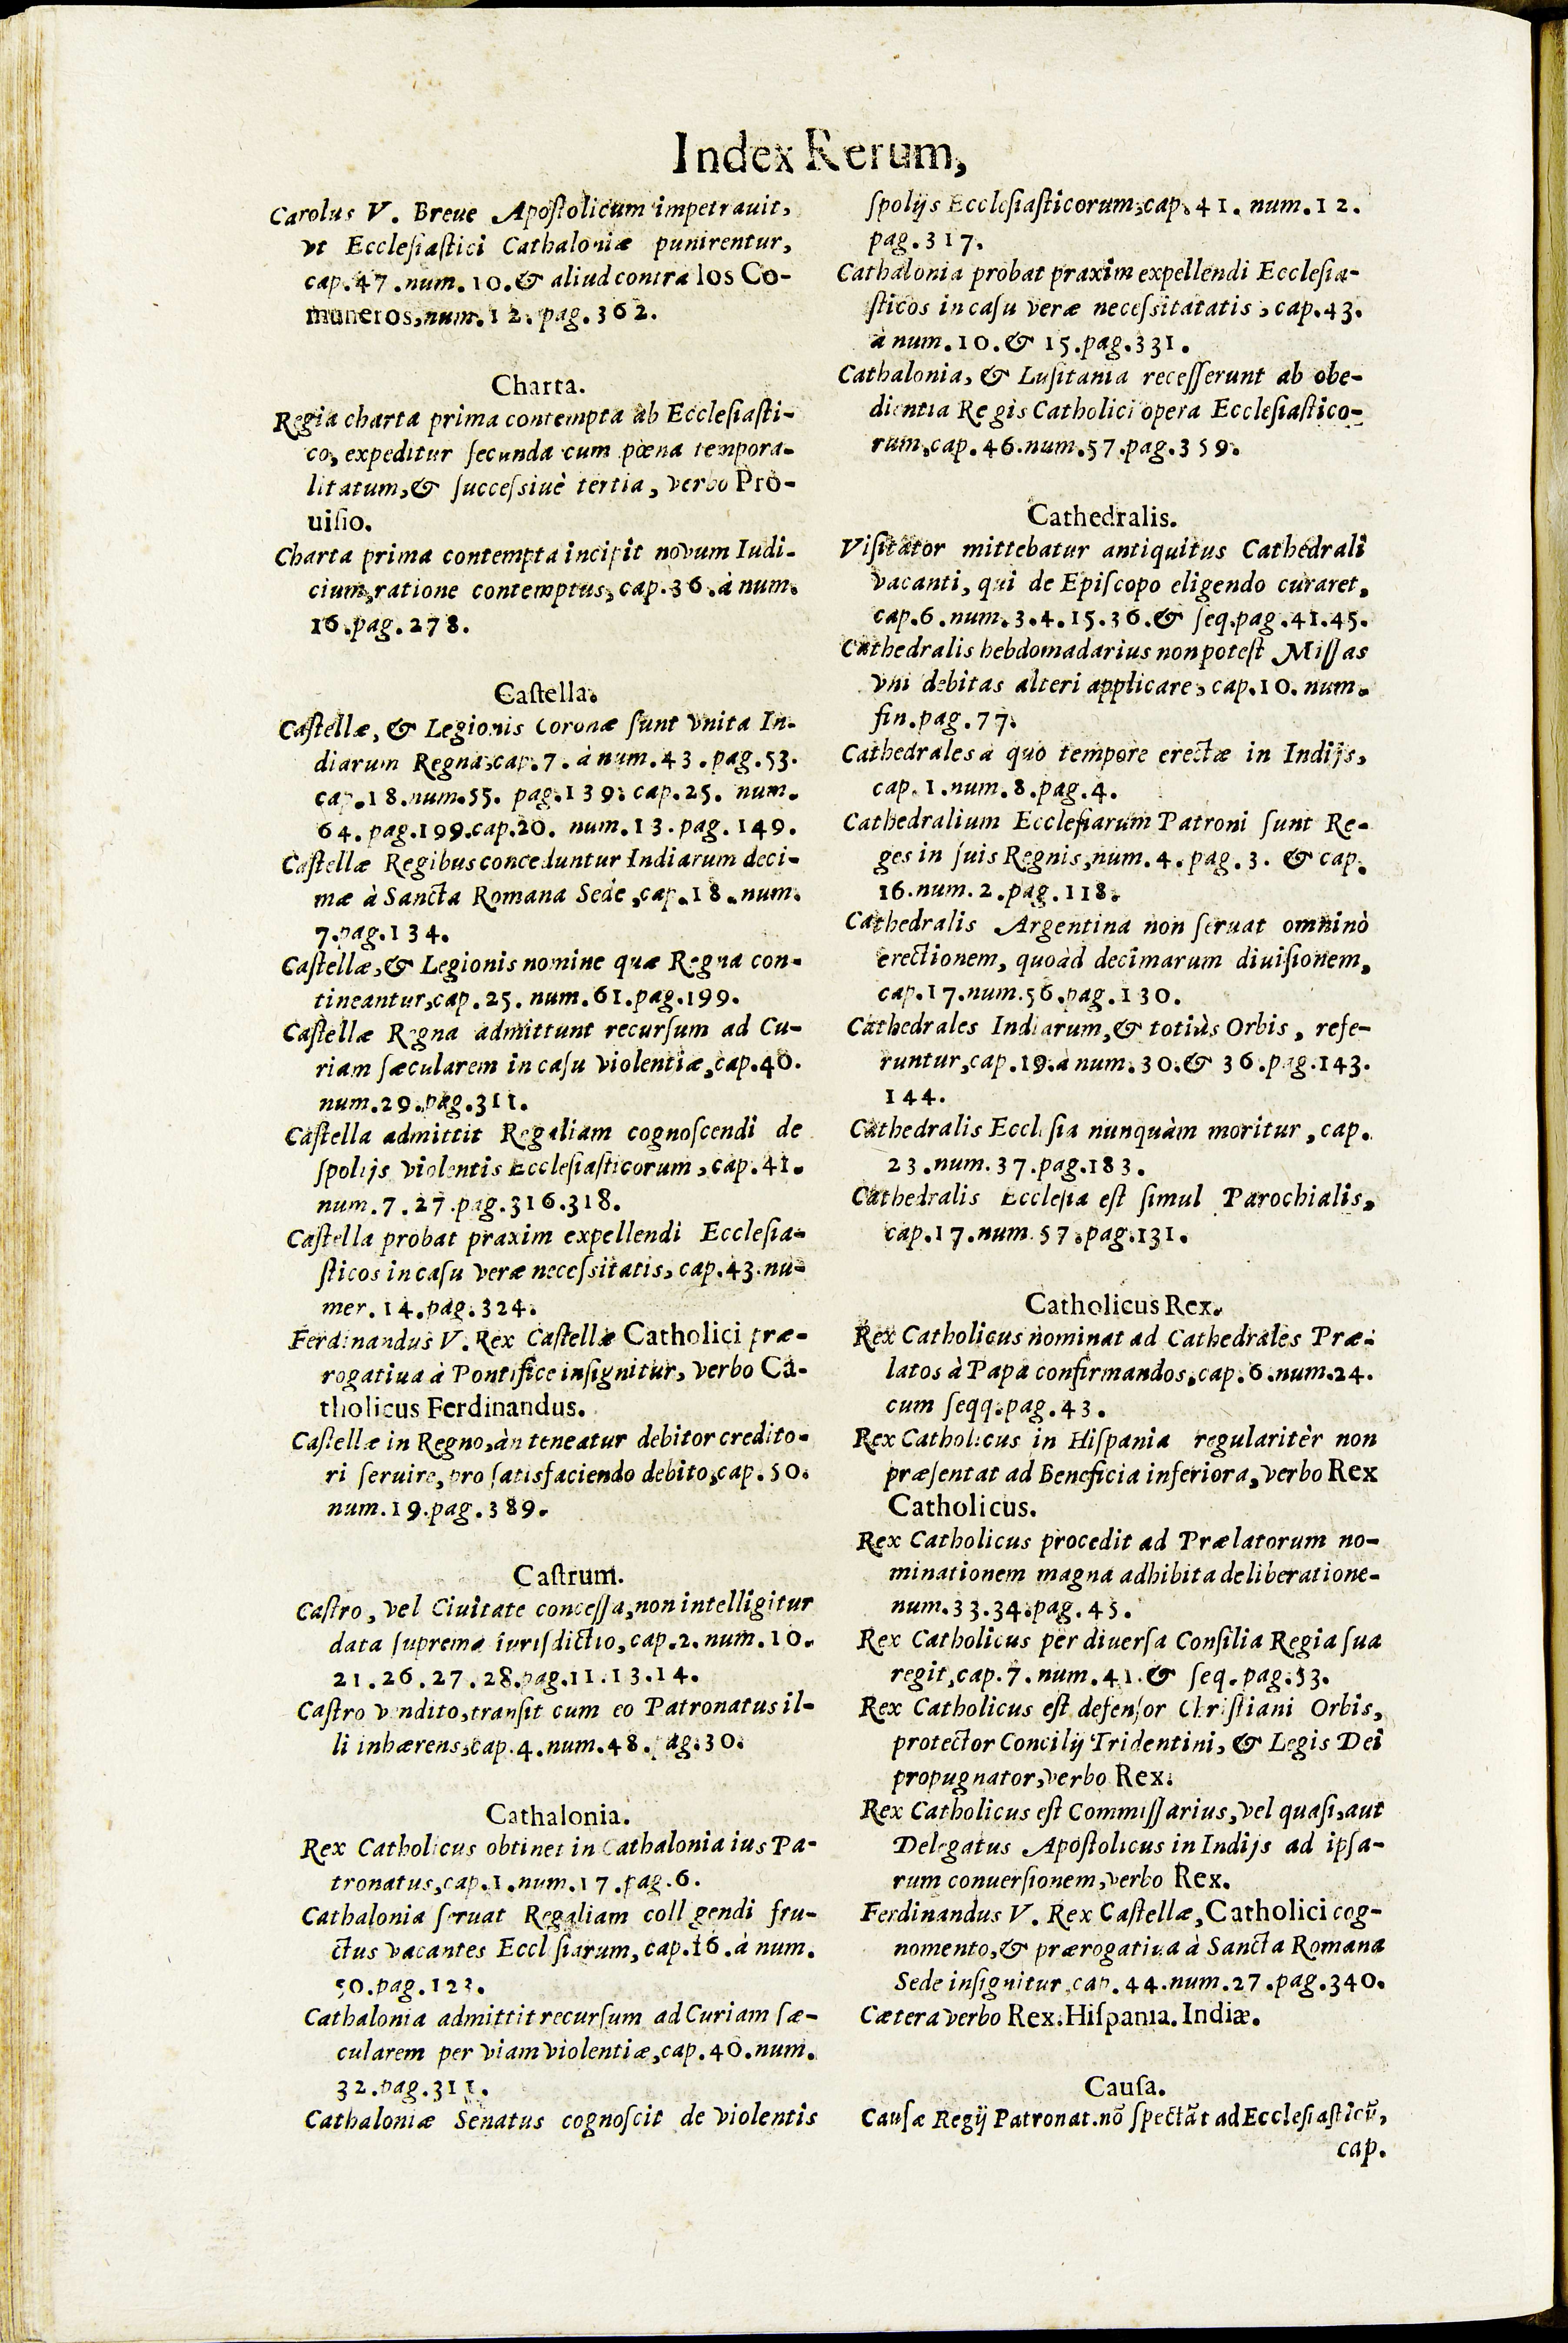 Index Rerum,
Carolus V. Breue Apoſtolicum impetrauit,
vt Eccleſiaſtici Cathaloniæ punirentur,
cap.47.num.10.& aliud contra los Co-
muneros,num.12.pag.362.
Charta.
Regia charta prima contempta ab Eccleſiaſti-
co, expeditur ſecunda cum pœna tempora-
litatum,& ſucceſsiuè tertia, verbo Pro-
uiſio.
Charta prima contempta incipit novum Iudi-
cium,ratione contemptus,cap.36.à num.
16.pag.278.
Caſtella.
Caſtellæ, & Legionis Coronæ ſunt vnita In-
diarum Regna,cap.7. à num.43.pag.53.
cap.18.num.55. pag.139. cap.25. num.
64. pag.199.cap.20. num.13.pag. 149.
Caſtellæ Regibus conceduntur Indiarum deci-
mæ à Sancta Romana Sede,cap.18.num.
7.pag.134.
Caſtellæ,& Legionis nomine quæ Regna con-
tineantur,cap.25. num.61.pag.199.
Caſtellæ Regna admittunt recurſum ad Cu-
riam ſæcularem in caſu violentiæ,cap.40.
num.29.pag.311.
Caſtella admittit Regaliam cognoſcendi de
ſpolijs violentis Eccleſiaſticorum,cap.41.
num.7.27.pag.316.318.
Caſtella probat praxim expellendi Eccleſia-
ſticos in caſu veræ neceſsitatis,cap.43.nu-
mer.14.pag.324.
Ferdinandus V. Rex Caſtellæ Catholici præ-
rogatiua à Pontifice inſignitur, verbo Ca-
tholicus Ferdinandus.
Caſtellæ in Regno,àn teneatur debitor credito-
ri ſeruire,pro ſatisfaciendo debito,cap.50.
num.19.pag.389.
Caſtrum.
Caſtro, vel Ciuitate conceſſa,non intelligitur
data ſuprema iuriſdictio,cap.2.num.10.
21.26.27.28.pag.11.13.14.
Caſtro vendito,tranſit cum eo Patronatus il-
li inhærens,cap.4.num.48.pag.30.
Cathalonia.
Rex Catholicus obtinet in Cathalonia ius Pa-
tronatus,cap.1.num.17.pag.6.
Cathalonia ſeruat Regaliam coll gendi fru-
ctus vacantes Eccl ſiarum,cap.16.à num.
50.pag.123.
Cathalonia admittit recurſum ad Curiam ſæ-
cularem per viam violentiæ,cap.40.num.
32.pag.311.
Cathaloniæ Senatus cognoſcit de violentis
ſpolijs Eccleſiaſticorum,cap.41. num.12.
pag.317.
Cathalonia probat praxim expellendi Eccleſia-
ſticos in caſu veræ neceſsitatatis,cap.43.
à num.10.& 15.pag.331.
Cathalonia, & Luſitania receſſerunt ab obe-
dientia Regis Catholici opera Eccleſiaſtico-
rum,cap.46.num.57.pag.359.
Cathedralis.
Viſitator mittebatur antiquitus Cathedrali
vacanti, qui de Epiſcopo eligendo curaret,
cap.6.num.3.4.15.36.& ſeq.pag.41.45.
Cathedralis hebdomadarius non poteſt Miſſas
vni debitas alteri applicare,cap.10.num.
fin.pag.77.
Cathedrales a quo tempore erectæ in Indijs,
cap.1.num.8.pag.4.
Cathedralium Eccleſiarum Patroni ſunt Re-
ges in ſuis Regnis,num.4.pag.3. & cap.
16.num.2.pag.118.
Cathedralis Argentina non ſeruat omninò
erectionem, quoàd decimarum diuiſionem,
cap.17.num.56.pag.130.
Cathedrales Indiarum,& totiùs Orbis, refe-
runtur,cap.19.à num.30.& 36.pag.143.
144.
Cathedralis Eccl ſia nunquàm moritur,cap.
23.num.37.pag.183.
Cathedralis Eccleſia eſt ſimul Parochialis,
cap.17.num.57.pag.131.
Catholicus Rex.
Rex Catholicus nominat ad Cathedrales Præ-
latos à Papa confirmandos,cap.6.num.24.
cum ſeqq.pag.43.
Rex Catholicus in Hiſpania regularitèr non
præſentat ad Beneficia inferiora,verbo Rex
Catholicus.
Rex Catholicus procedit ad Prælatorum no-
minationem magna adhibita deliberatione-
num.33.34.pag.45.
Rex Catholicus per diuerſa Conſilia Regia ſua
regit,cap.7.num.41.& ſeq.pag.53.
Rex Catholicus eſt defenſor Chriſtiani Orbis,
protector Concilij Tridentini, & Legis Dei
propugnator,verbo Rex.
Rex Catholicus eſt Commiſſarius,vel quaſi,aut
Delegatus Apoſtolicus in Indijs ad ipſa-
rum conuerſionem,verbo Rex.
Ferdinandus V. Rex Caſtellæ,Catholici cog-
nomento,& prærogatiua à Sancta Romana
Sede inſignitur,cap.44.num.27.pag.340.
Cætera verbo Rex.Hiſpania. Indiæ.
Cauſa.
Cauſæ Regij Patronat.nõ ſpectãt ad Eccleſiaſticũ,
cap.